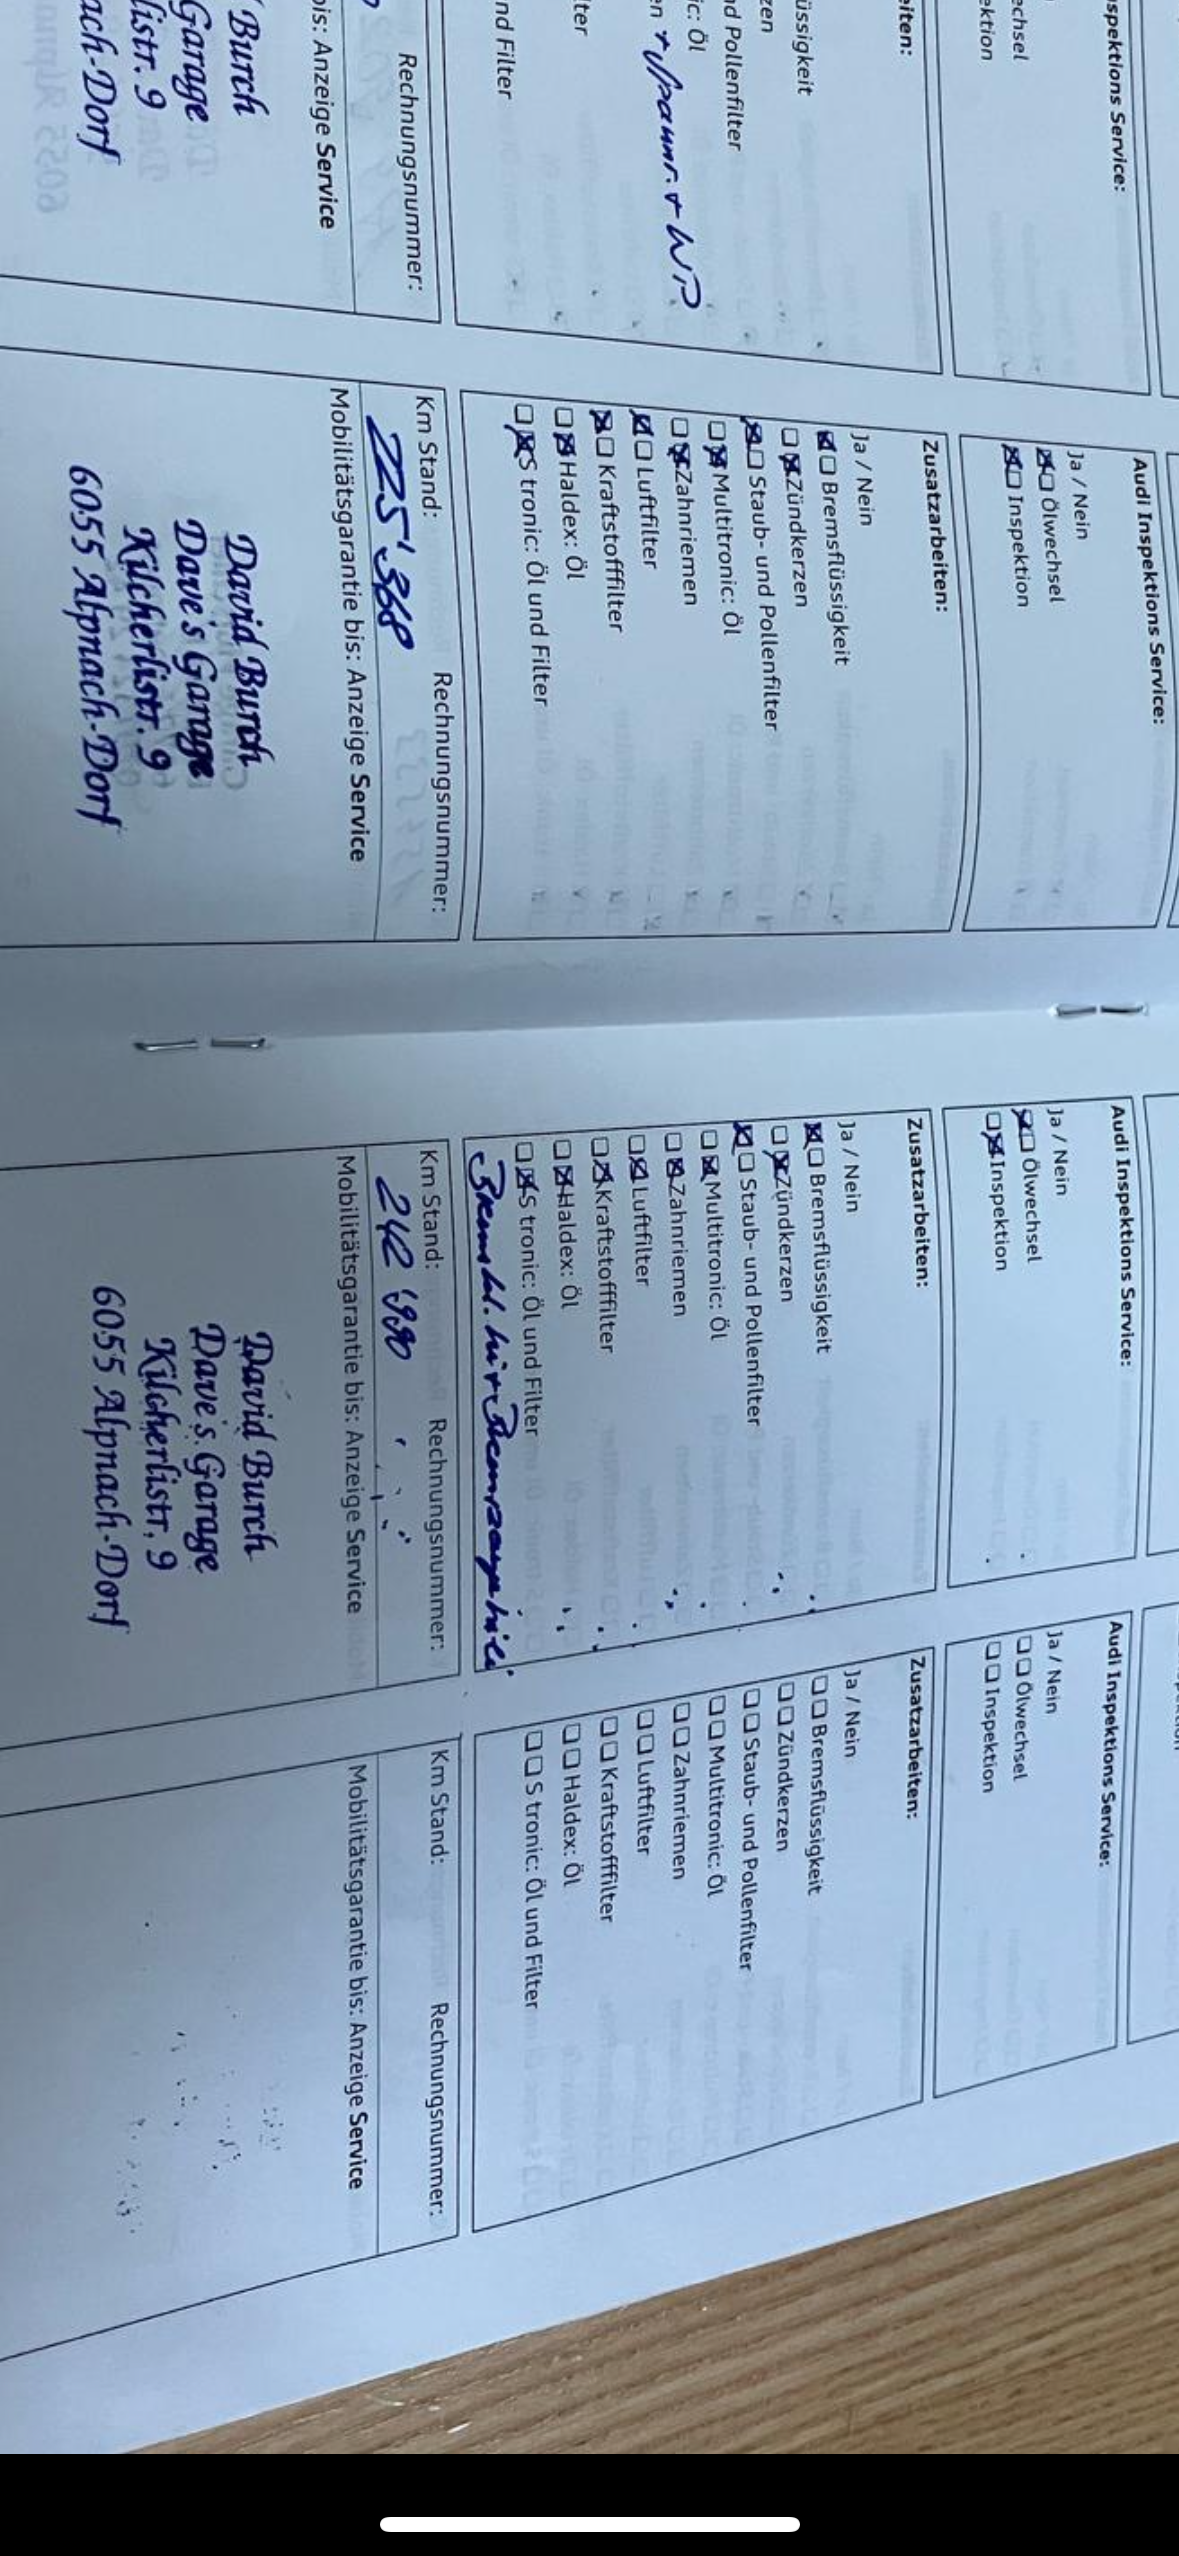 spektions Service:
echsel
ektion
eiten:
üssigkeit
zen
d Pollenfilter
ic: Öl
en + Spannr. + WP
lter
nd Filter
Rechnungsnummer:
bis: Anzeige Service
Burch
Garage
listr. 9
ach-Dorf
Audi Inspektions Service:
Ja / Nein
Ölwechsel
Inspektion
Zusatzarbeiten:
Ja / Nein
Bremsflüssigkeit
Zündkerzen
Staub- und Pollenfilter
Multitronic: Öl
Zahnriemen
Luftfilter
Kraftstofffilter
Haldex: Öl
S tronic: Öl und Filter
Km Stand: Rechnungsnummer:
225'368
Mobilitätsgarantie bis: Anzeige Service
David Burch
Dave's Garage
Kilcherlistr. 9
6055 Alpnach-Dorf
Audi Inspektions Service:
Ja / Nein
Ölwechsel
Inspektion
Zusatzarbeiten:
Ja / Nein
Bremsflüssigkeit
Zündkerzen
Staub- und Pollenfilter
Multitronic: Öl
Zahnriemen
Luftfilter
Kraftstofffilter
Haldex: Öl
S tronic: Öl und Filter
Km Stand: Rechnungsnummer:
Mobilitätsgarantie bis: Anzeige Service
David Burch
Dave's Garage
Kilcherlistr. 9
6055 Alpnach-Dorf
Audi Inspektions Service:
Ja / Nein
Ölwechsel
Inspektion
Zusatzarbeiten:
Ja / Nein
Bremsflüssigkeit
Zündkerzen
Staub- und Pollenfilter
Multitronic: Öl
Zahnriemen
Luftfilter
Kraftstofffilter
Haldex: Öl
S tronic: Öl und Filter
Km Stand: Rechnungsnummer:
Mobilitätsgarantie bis: Anzeige Service